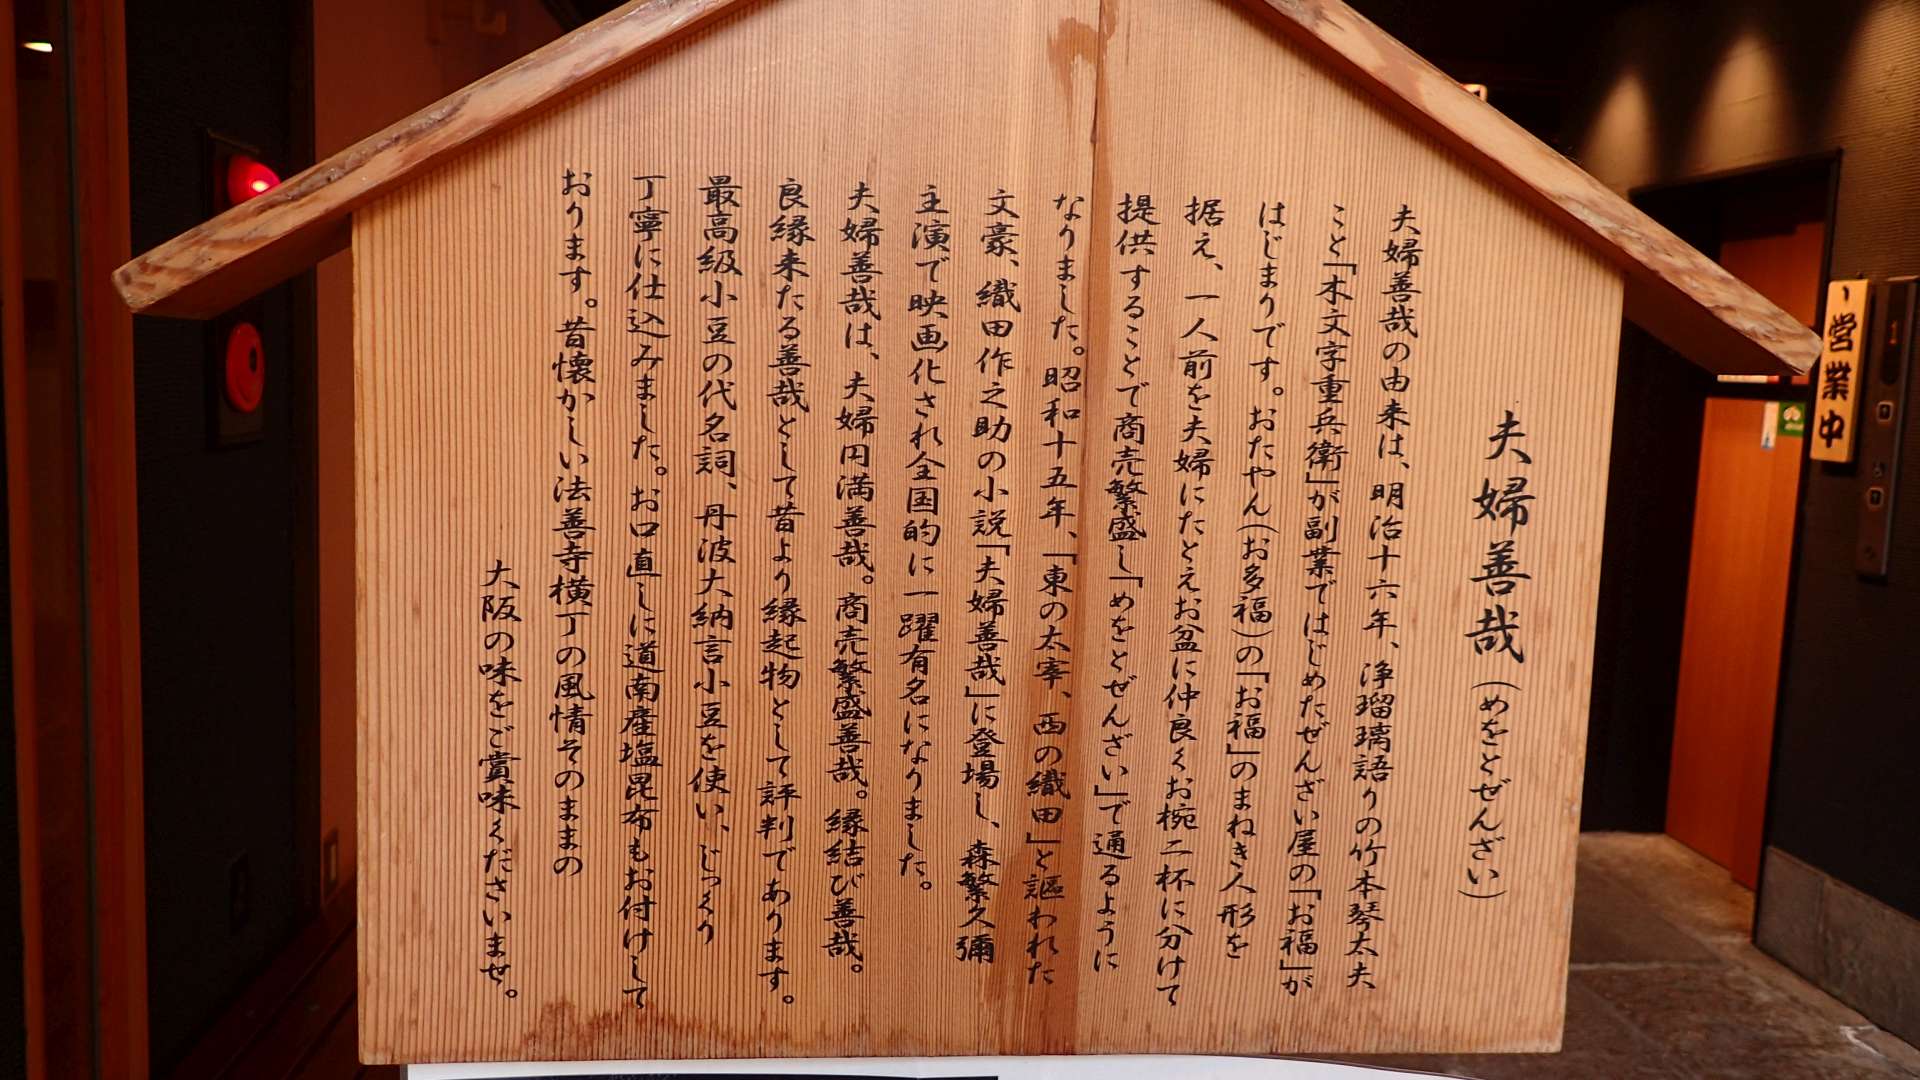 夫婦善哉(めをとぜんざい)
夫婦善哉の由来は、明治十六年、浄瑠璃語りの竹本琴太夫
こと「木文字重兵衛」が副業ではじめたぜんざい屋の「お福」が
はじまりです。おたやん(お多福)の「お福」のまねき人形を
据え、一人前を夫婦にたとえお盆に仲良くお椀二杯に分けて
提供することで商売繁盛し「めをとぜんざい」で通るように
なりました。昭和十五年、「東の太宰、西の織田」と謳われた
文豪、織田作之助の小説「夫婦善哉」に登場し、森繁久彌
主演で映画化され全国的に一躍有名になりました。
夫婦善哉は、夫婦円満善哉。商売繁盛善哉。縁結び善哉。
良縁来たる善哉として昔より縁起物として評判であります。
最高級小豆の代名詞、丹波大納言小豆を使い、じっくり
丁寧に仕込みました。お口直しに道南産塩昆布もお付けして
おります。昔懐かしい法善寺横丁の風情そのままの
大阪の味をご賞味くださいませ。
営業中